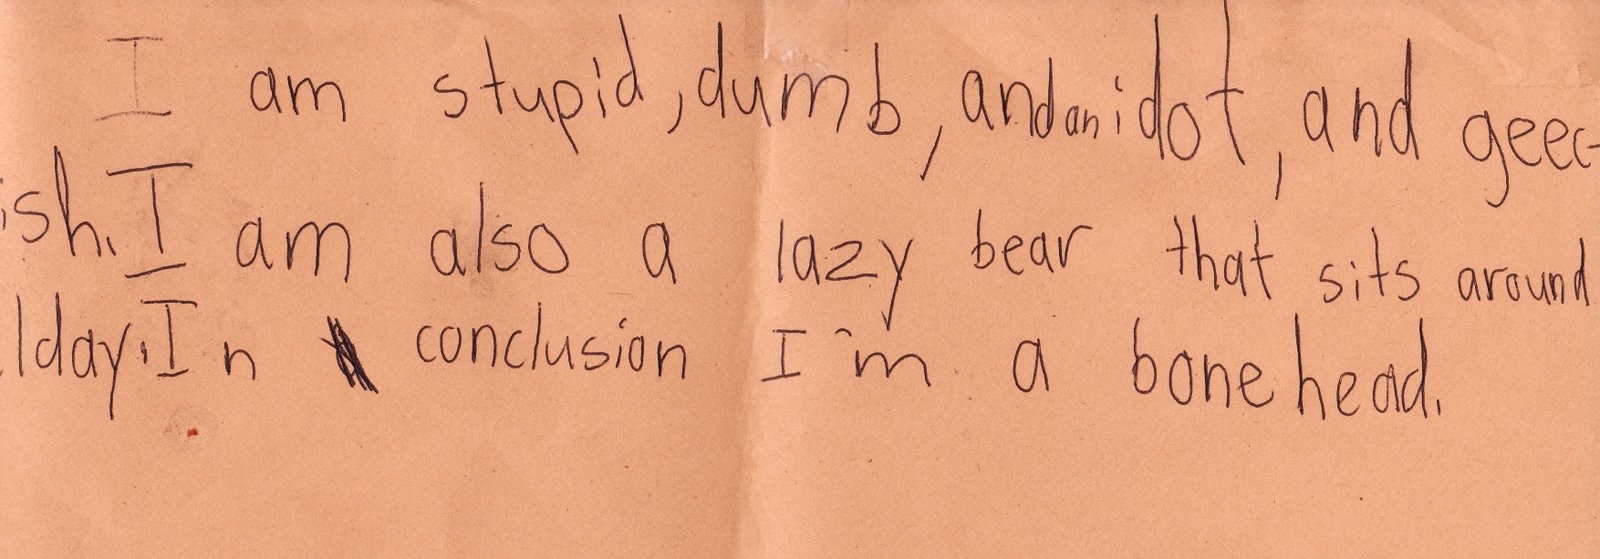 I am stupid, dumb, and an idot, and geec-
ish. I am also a lazy bear that sits around
lday. In conclusion I'm a bone head.